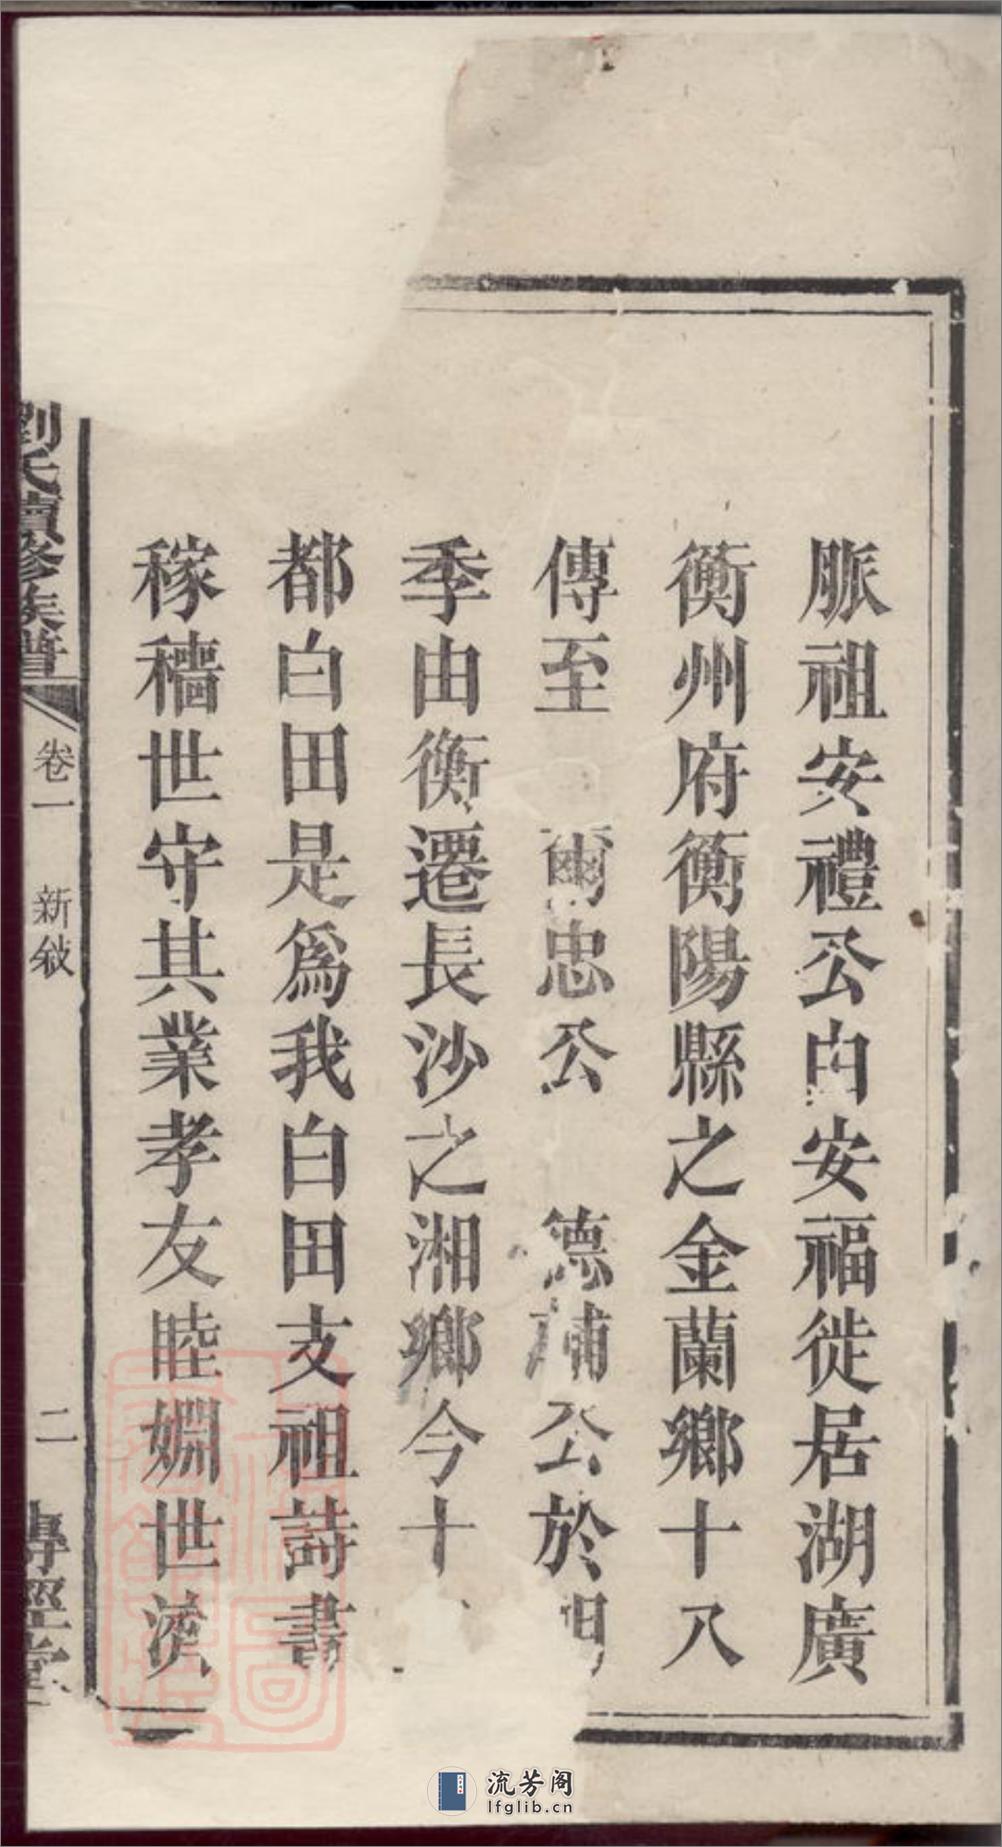 脈祖安禮公由安福徙居湖廣
衡州府衡陽縣之金蘭鄉十八
傳至 爾忠公 德輔公於明
季由衡遷長沙之湘鄉今十
都白田是爲我白田支祖詩書
稼穡世守其業孝友睦婣世流
劉氏續修族譜 卷一 新敘 二 傳經堂
流芳阁
lfglib.cn